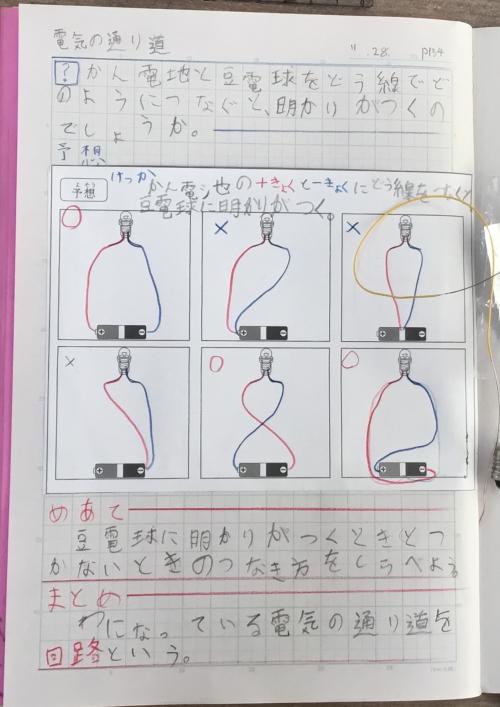 電気の通り道 11.28. P134
? かん電地と豆電球をどう線でど
のようにつなぐと、明かりがつくの
でしょうか。
予想
けっか
予想 かん電池の+きょくと−きょくにどう線をつなぐと
豆電球に明かりがつく。
○ × ×
+ − + − + −
× ○ ○
+ − + − + −
めあて
豆電球に明かりがつくときとつ
かないときのつなぎ方をしらべよう
まとめ
わになっている電気の通り道を
回路という。